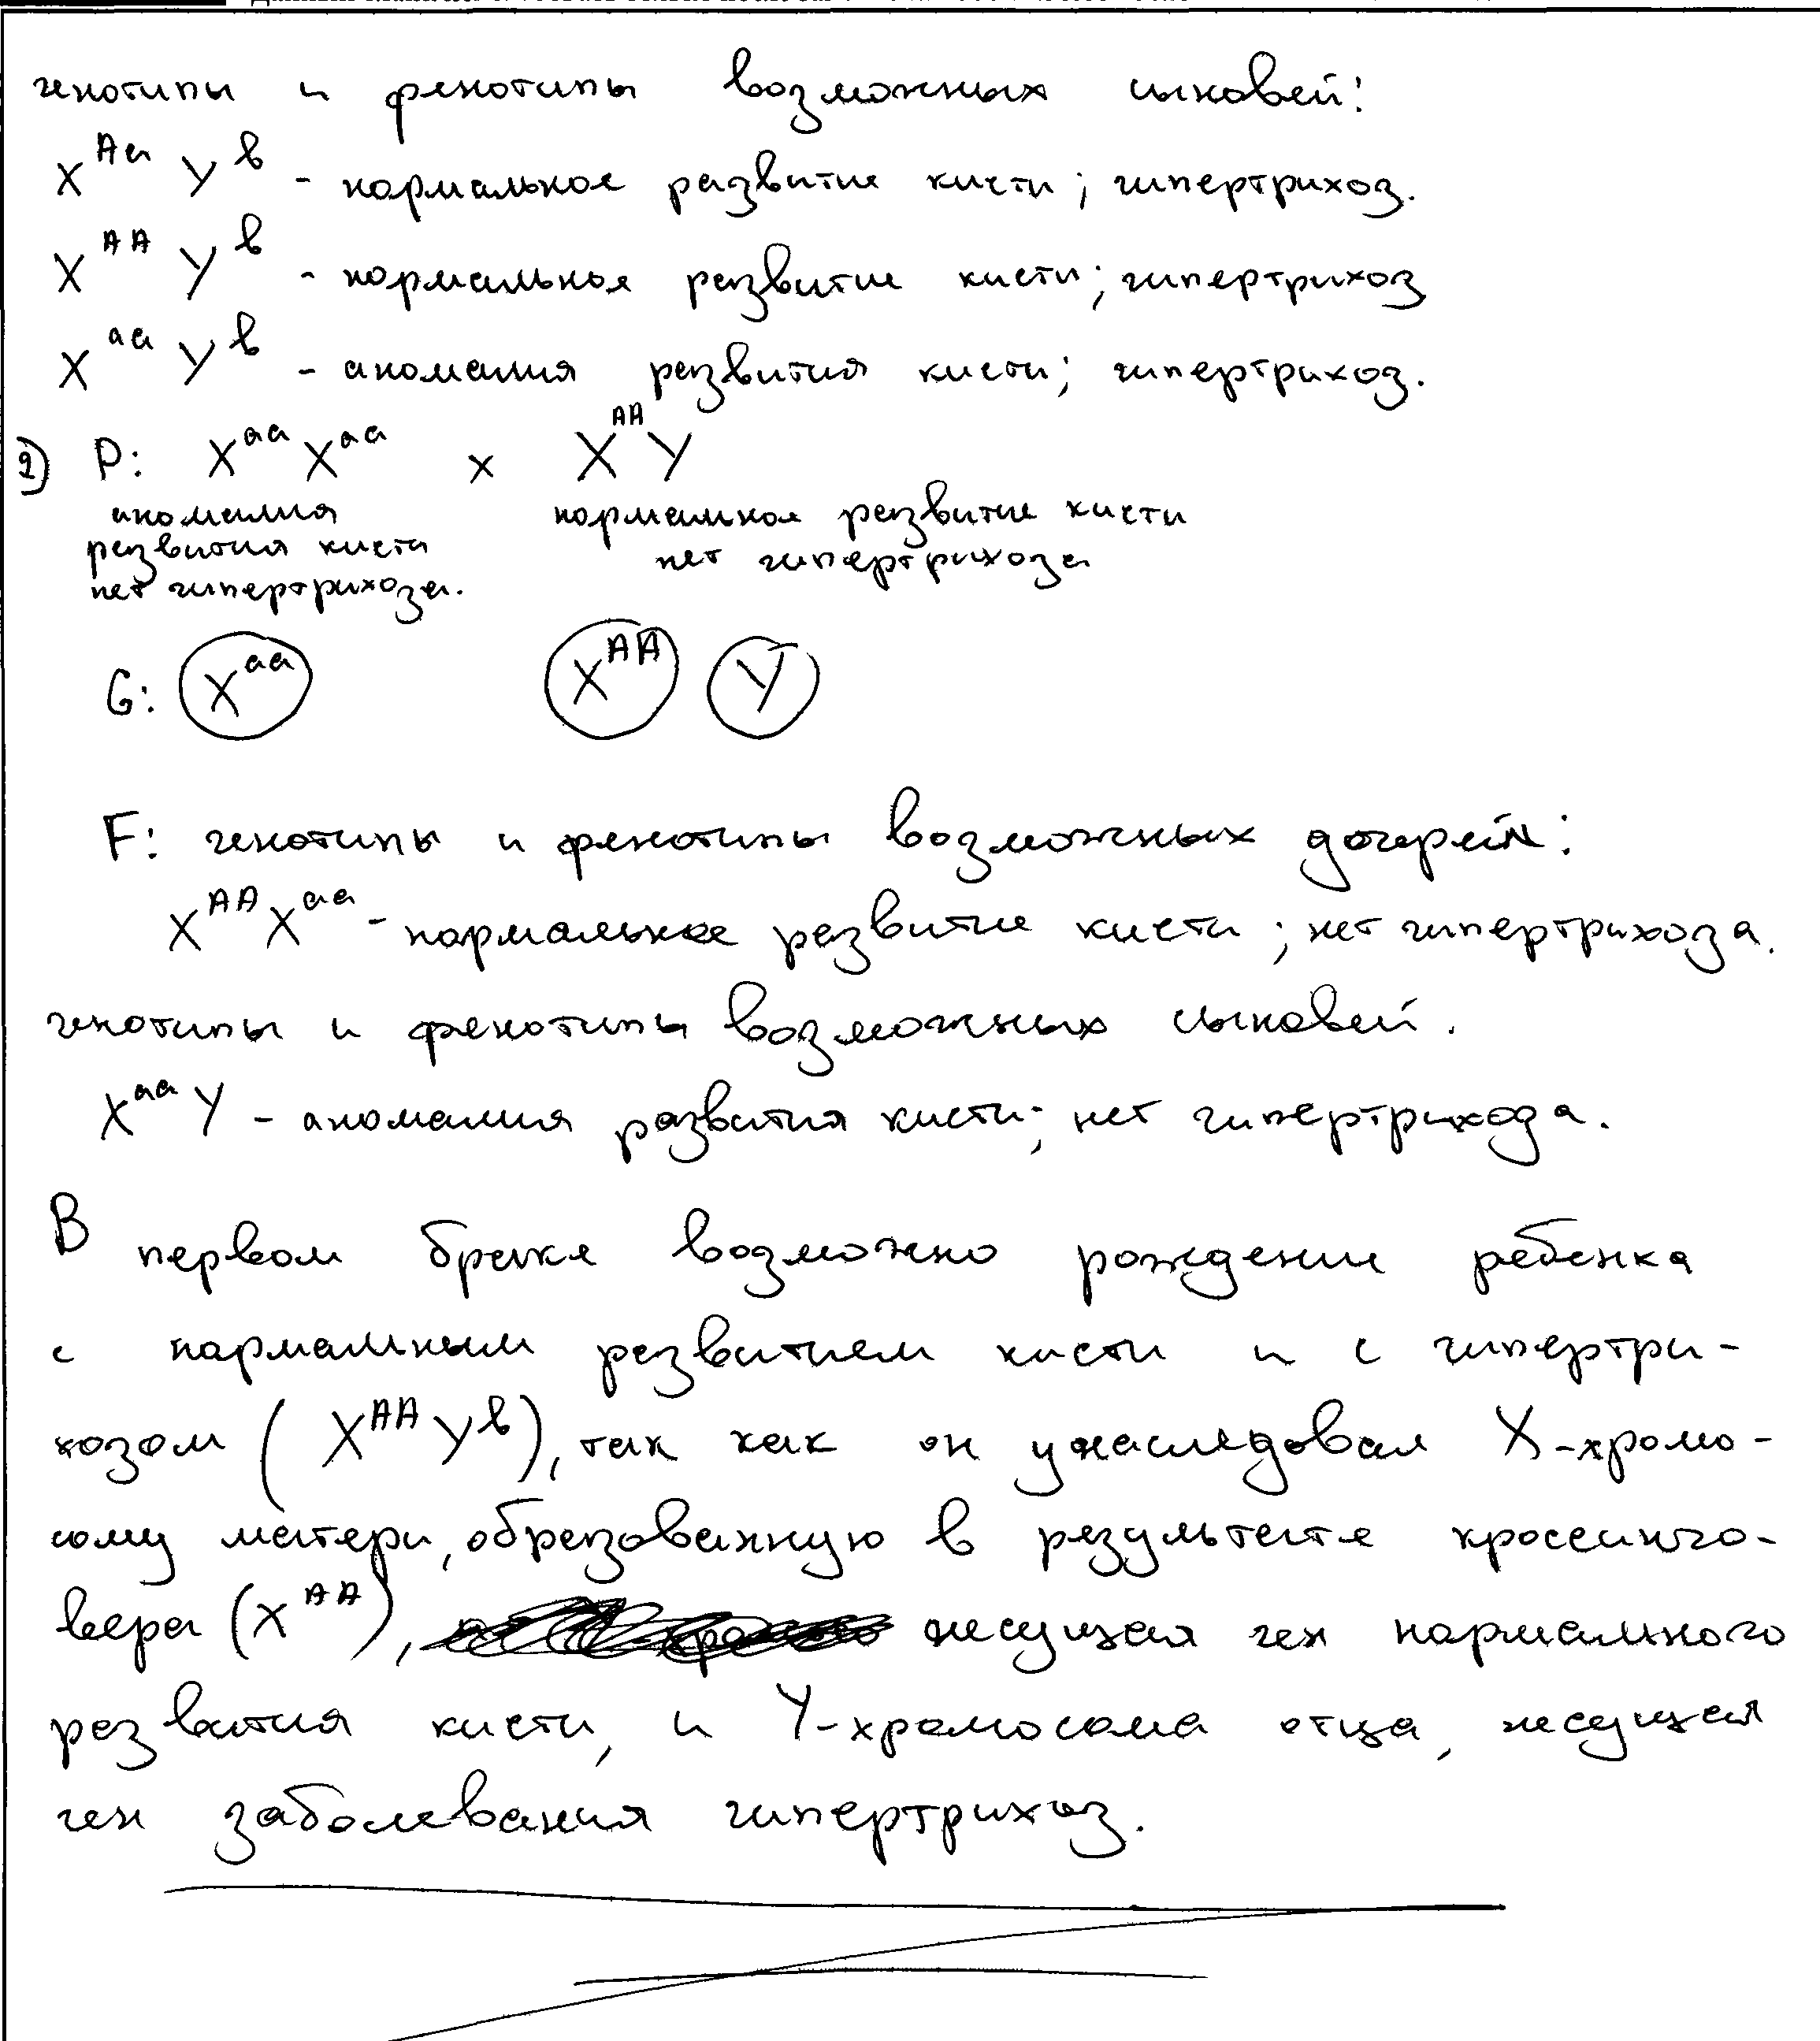 генотипы и фенотипы возможных сыновей:
X^Aa Y^b - нормальное развитие кисти; гипертрихоз.
X^AA Y^b - нормальное развитие кисти; гипертрихоз
X^aa Y^b - аномалия развития кисти; гипертрихоз.
2) P: X^aa X^aa x X^AA Y
аномалия нормальное развитие кисти
развития кисти нет гипертрихоза
нет гипертрихоза.
G: X^aa X^AA Y
F: генотипы и фенотипы возможных дочерей:
X^AA X^aa - нормальное развитие кисти; нет гипертрихоза.
генотипы и фенотипы возможных сыновей.
X^aa Y - аномалия развития кисти; нет гипертрихода.
В первом браке возможно рождение ребенка
с нормальным развитием кисти и с гипертри-
хозом (X^AA Y^b), так как он унаследовал X-хромо-
сому матери, образованную в результате кроссинго-
вера (X^AA), несущая ген нормального
развития кисти, и Y-хромосома отца, несущая
ген заболевания гипертрихоз.